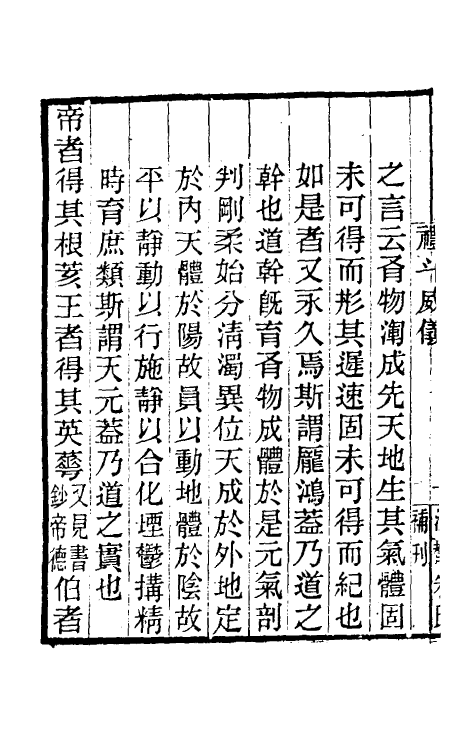 禮斗威儀
補刊
之言云有物渾成先天地生其氣體固
未可得而形其遲速固未可得而紀也
如是者又永久焉斯謂龎鴻葢乃道之
幹也道幹旣育有物成體於是元氣剖
判剛柔始分清濁異位天成於外地定
於内天體於陽故員以動地體於陰故
平以静動以行施静以合化堙鬱搆精
時育庶類斯謂天元葢乃道之實也
帝者得其根荄王者得其英蕚又見書鈔帝德伯者